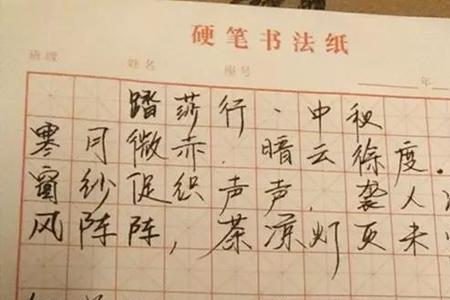 硬笔书法纸
班级 姓名 座号 年
踏莎行·中秋
寒月微赤.暗云徐度.
窗纱促织声声,袭人
风阵阵,茶凉灯页未